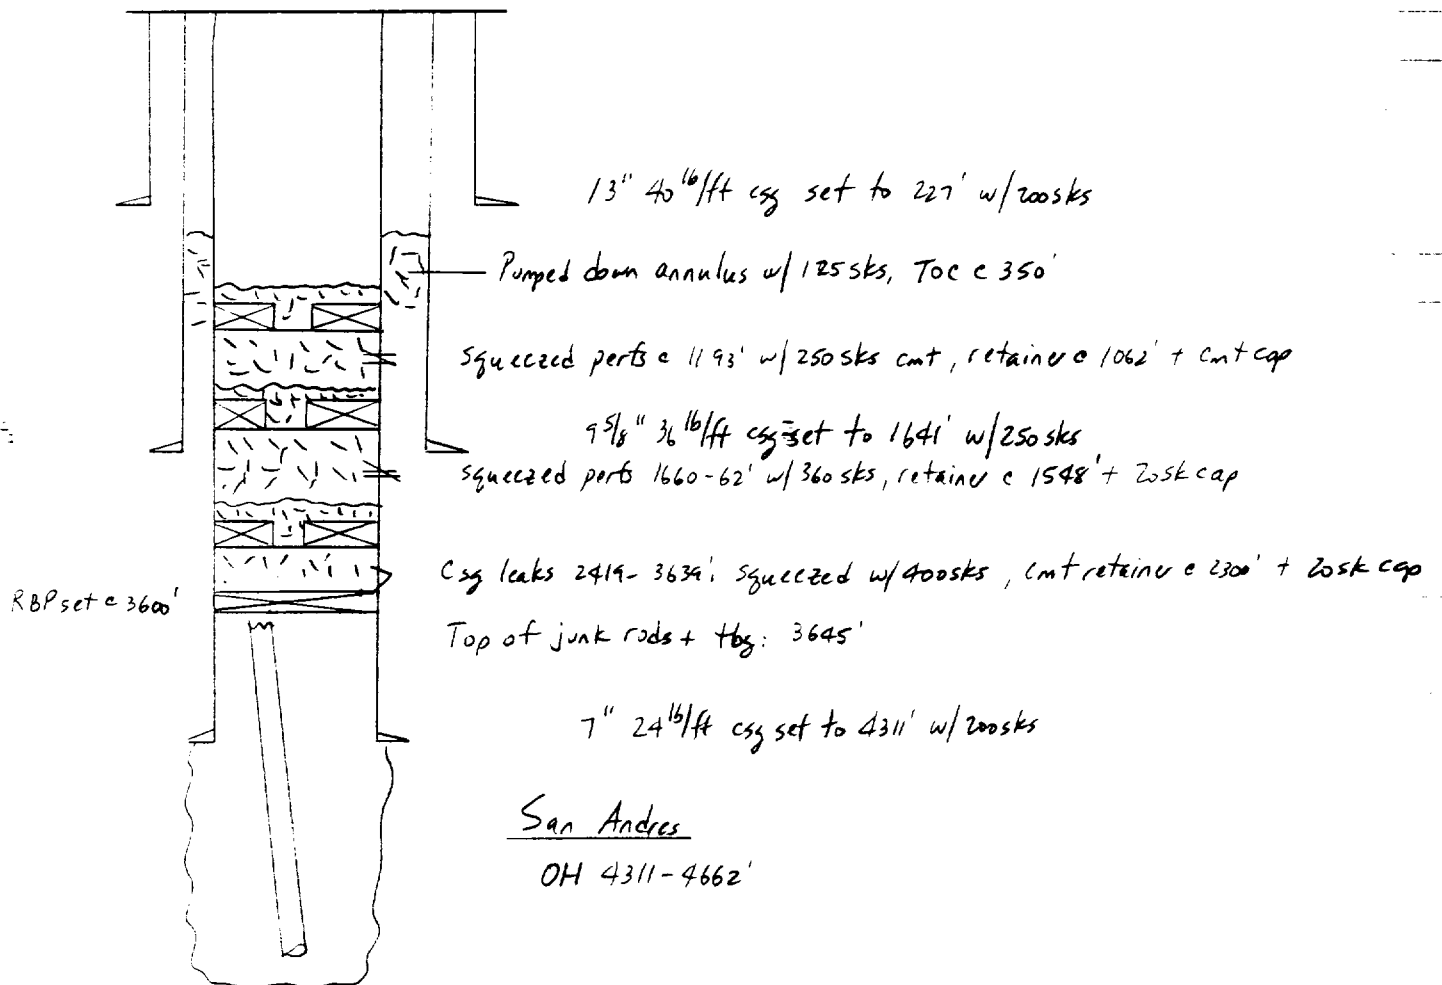 13" 40 lb/ft csg set to 227' w/200sks
Pumped down annulus w/ 125 sks, TOC @ 350'
squeezed perfs @ 1193' w/ 250 sks cmt, retainer @ 1062' + cmt cap
9 5/8" 36 lb/ft csg set to 1641' w/250 sks
squeezed perfs 1660-62' w/ 360 sks, retainer @ 1548' + 20sk cap
Csg leaks 2419-3639'. squeezed w/400sks, cmt retainer @ 2300' + 20sk cap
RBP set @ 3600'
Top of junk rods + tbg: 3645'
7" 24 lb/ft csg set to 4311' w/200sks
San Andres
OH 4311-4662'